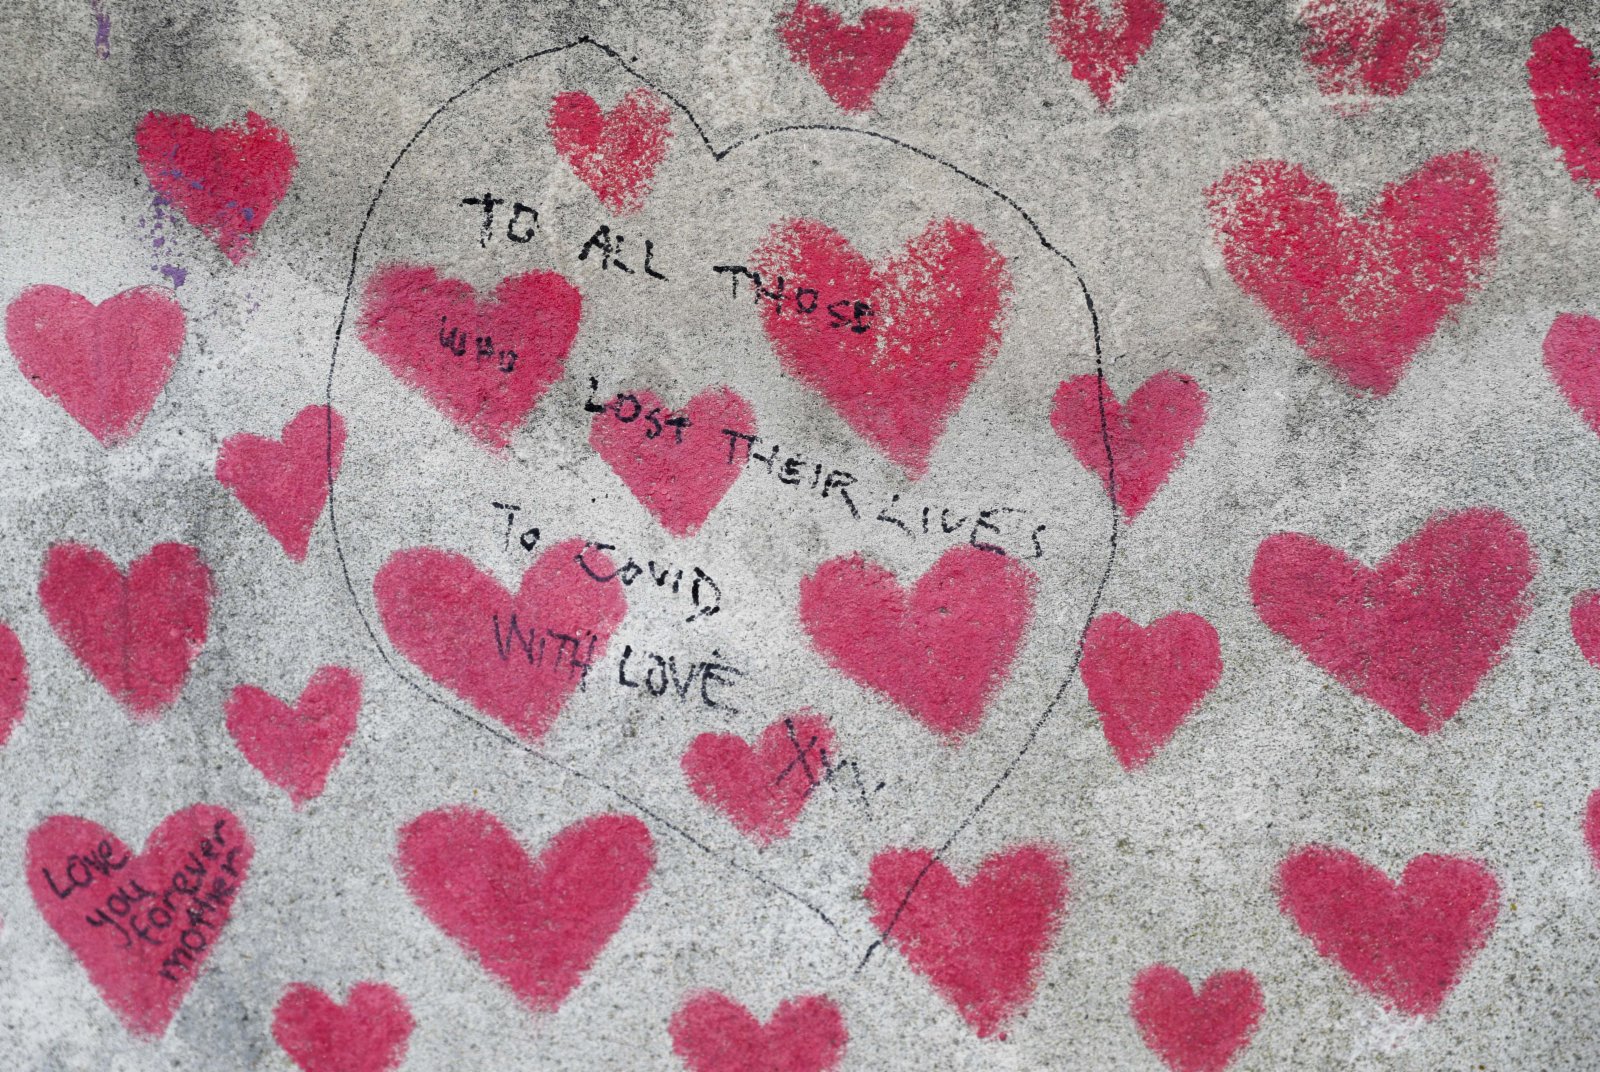 TO ALL THOSE
WHO LOST THEIR LIVES
To COVID
WITH LOVE
Love
you
forever
mother